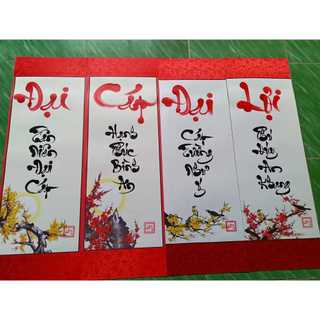 Đại
Tân
Niên
Đại
Cát
Cát
Hạnh
Phúc
Bình
An
Đại
Cát
Tường
Như
Ý
Lợi
An
Khang